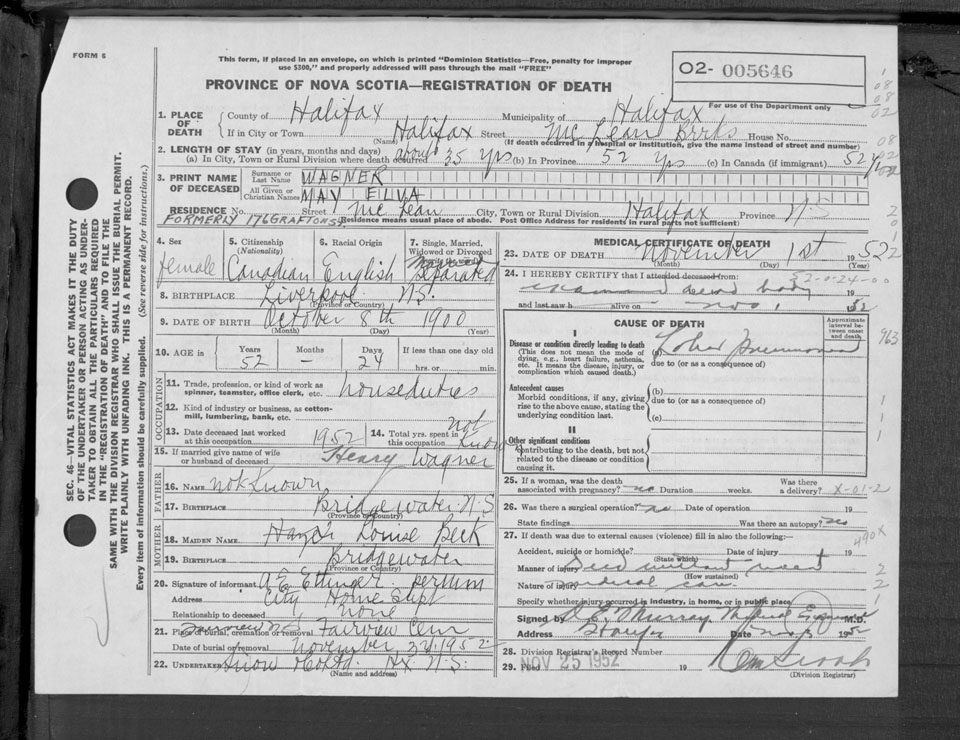 FORM 6
This form, if placed in an envelope, on which is printed "Dominion Statistics—Free, penalty for improper
use $300," and properly addressed will pass through the mail "FREE"
O2- 005646
PROVINCE OF NOVA SCOTIA—REGISTRATION OF DEATH
For use of the Department only
1. PLACE OF DEATH
County of Halifax Municipality of Halifax
If in City or Town Halifax Street Mc Lean House No.
(Name) (If death occurred in a hospital or institution, give the name instead of street and number)
2. LENGTH OF STAY (in years, months and days)
(a) In City, Town or Rural Division where death occurred about 35 yrs (b) In Province 52 yrs (c) In Canada (if immigrant) 52
3. PRINT NAME OF DECEASED
Surname or Last Name WAGNER
All Given or Christian Names MAY
RESIDENCE No. Street Mc Lean City, Town or Rural Division Halifax Province N.S
FORMERLY GRAFTON ST. Residence means usual place of abode. Post Office Address for residents in rural parts not sufficient)
4. Sex female
5. Citizenship (Nationality) Canadian
6. Racial Origin English
7. Single, Married, Widowed or Divorced Separated
8. BIRTHPLACE Liverpool N.S.
(Province or Country)
9. DATE OF BIRTH October 8th 1900
(Month) (Day) (Year)
10. AGE in Years 52 Months Days 24 If less than one day old hrs. or min.
OCCUPATION
11. Trade, profession, or kind of work as
spinner, teamster, office clerk, etc. houseduties
12. Kind of industry or business, as cotton-
mill, lumbering, bank, etc.
13. Date deceased last worked
at this occupation 1952
14. Total yrs. spent in
this occupation not known
15. If married give name of wife
or husband of deceased Henry Wagner
FATHER
16. NAME not known
17. BIRTHPLACE Bridgewater N.S
(Province or Country)
MOTHER
18. MAIDEN NAME Louise
19. BIRTHPLACE Bridgewater
(Province or Country)
20. Signature of informant A E Ettinger
Address City Home Supt
Relationship to deceased none
21. Place of burial, cremation or removal Fairview Cem
Date of burial or removal November 3 1952
22. UNDERTAKER Snow & Co Ltd Hx N.S.
(Name and address)
MEDICAL CERTIFICATE OF DEATH
23. DATE OF DEATH November 1st 1952
(Month) (Day) (Year)
24. I HEREBY CERTIFY that I attended deceased from
examined dead body 19
and last saw h alive on Nov 1 52
CAUSE OF DEATH
Approximate interval between onset and death
I
Disease or condition directly leading to death
(This does not mean the mode of
dying, e.g., heart failure, asthenia,
etc. It means the disease, injury, or
complication which caused death.)
(a) Lobar Pneumonia
due to (or as a consequence of)
Antecedent causes
Morbid conditions, if any, giving
rise to the above cause, stating the
underlying condition last.
(b)
due to (or as a consequence of)
(c)
II
Other significant conditions
contributing to the death, but not
related to the disease or condition
causing it.
963
25. If a woman, was the death
associated with pregnancy? no Duration weeks. Was there a delivery? X-01-2
26. Was there a surgical operation? no Date of operation 19
State findings Was there an autopsy?
27. If death was due to external causes (violence) fill in also the following:—
490X
Accident, suicide or homicide? Date of injury 19
(State which)
Manner of injury Died without
(How sustained)
Nature of injury medical care
Specify whether injury occurred in industry, in home, or in public place
Signed by Murray Medical Examiner M.D.
Address Halifax Date 1952
28. Division Registrar's Record Number
29. Filed NOV 25 1952 19
(Division Registrar)
SEC. 46—VITAL STATISTICS ACT MAKES IT THE DUTY
OF THE UNDERTAKER OR PERSON ACTING AS UNDER-
TAKER TO OBTAIN ALL THE PARTICULARS REQUIRED
IN THE "REGISTRATION OF DEATH" AND TO FILE THE
SAME WITH THE DIVISION REGISTRAR WHO SHALL ISSUE THE BURIAL PERMIT.
WRITE PLAINLY WITH UNFADING INK. THIS IS A PERMANENT RECORD.
Every item of information should be carefully supplied. (See reverse side for instructions.)